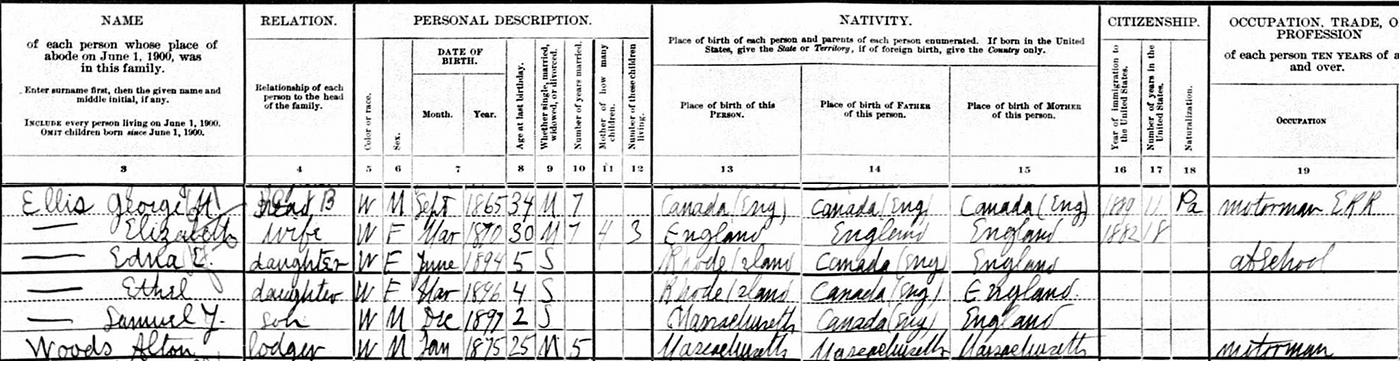 NAME
of each person whose place of
abode on June 1, 1900, was
in this family.
Enter surname first, then the given name and
middle initial, if any.
INCLUDE every person living on June 1, 1900.
OMIT children born since June 1, 1900.
3
RELATION.
Relationship of each
person to the head
of the family.
4
PERSONAL DESCRIPTION.
Color or race.
5
Sex.
6
DATE OF
BIRTH.
Month. Year.
7
Age at last birthday.
8
Whether single, married,
widowed, or divorced.
9
Number of years married.
10
Mother of how many
children.
11
Number of these children
living.
12
NATIVITY.
Place of birth of each person and parents of each person enumerated. If born in the United
States, give the State or Territory; if of foreign birth, give the Country only.
Place of birth of this
PERSON.
13
Place of birth of FATHER
of this person.
14
Place of birth of MOTHER
of this person.
15
CITIZENSHIP.
Year of immigration to
the United States.
16
Number of years in the
United States.
17
Naturalization.
18
OCCUPATION, TRADE, O
PROFESSION
of each person TEN YEARS of a
and over.
OCCUPATION
19
Ellis George M head B W M Sept 1865 34 M 7 Canada (Eng) Canada (Eng) Canada (Eng) 11 Pa motorman ERR
— Elizabeth wife W F Mar 1870 30 M 7 4 3 England England England 1882 18
— Edna E. daughter W F June 1894 5 S Rhode Island Canada (Eng) England at School
— Ethel daughter W F Mar 1896 4 S Rhode Island Canada (Eng) England.
— Samuel Y. son W M Dec 1897 2 S Massachusetts Canada (Eng) England
Woods Alton lodger W M Jan 1875 25 M 5 Massachusetts Massachusetts Massachusetts motorman